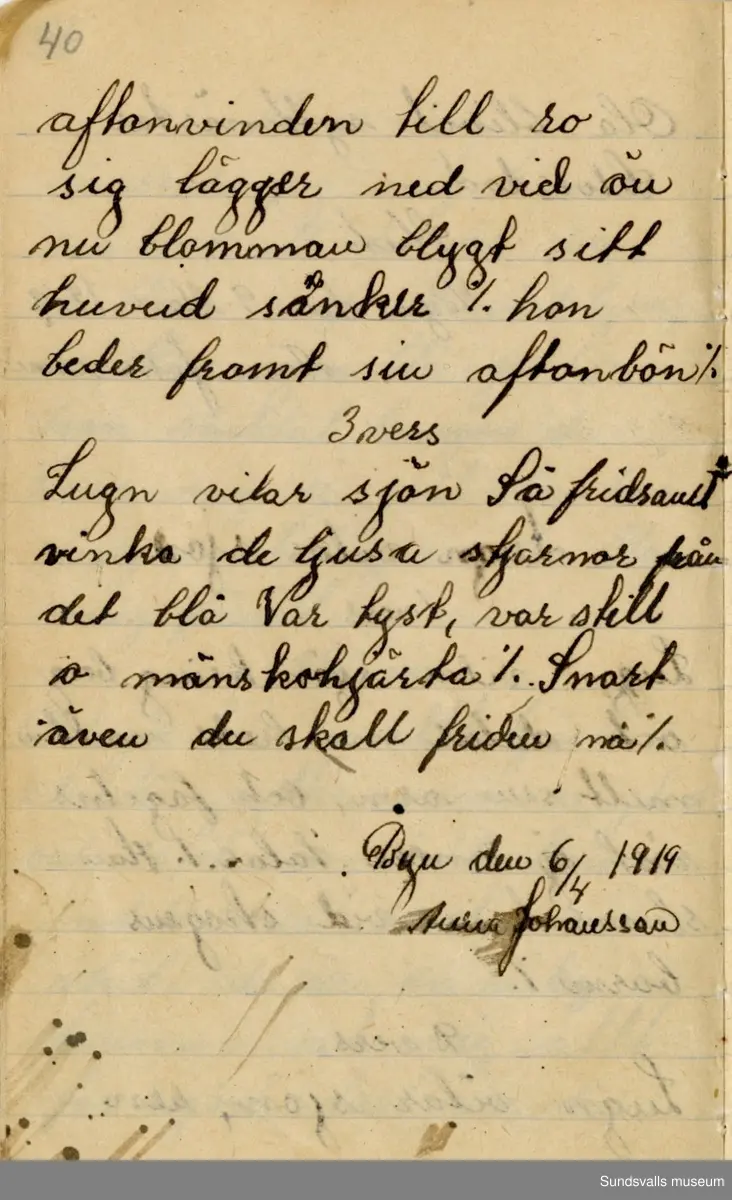 40
aftonvinden till ro
sig lägger ned vid ön
nu blomman blygt sitt
huvud sänker %. hon
beder fromt sin aftonbön %.
3 vers
Lugn vilar sjön Så fridsamt
vinka de ljusa stjärnor från
det blå Var tyst, var still
o mänskohjärta %. Snart
även du skall friden nå %.
Byn den 6/4 1919
Anna Johansson
Sundsvalls museum